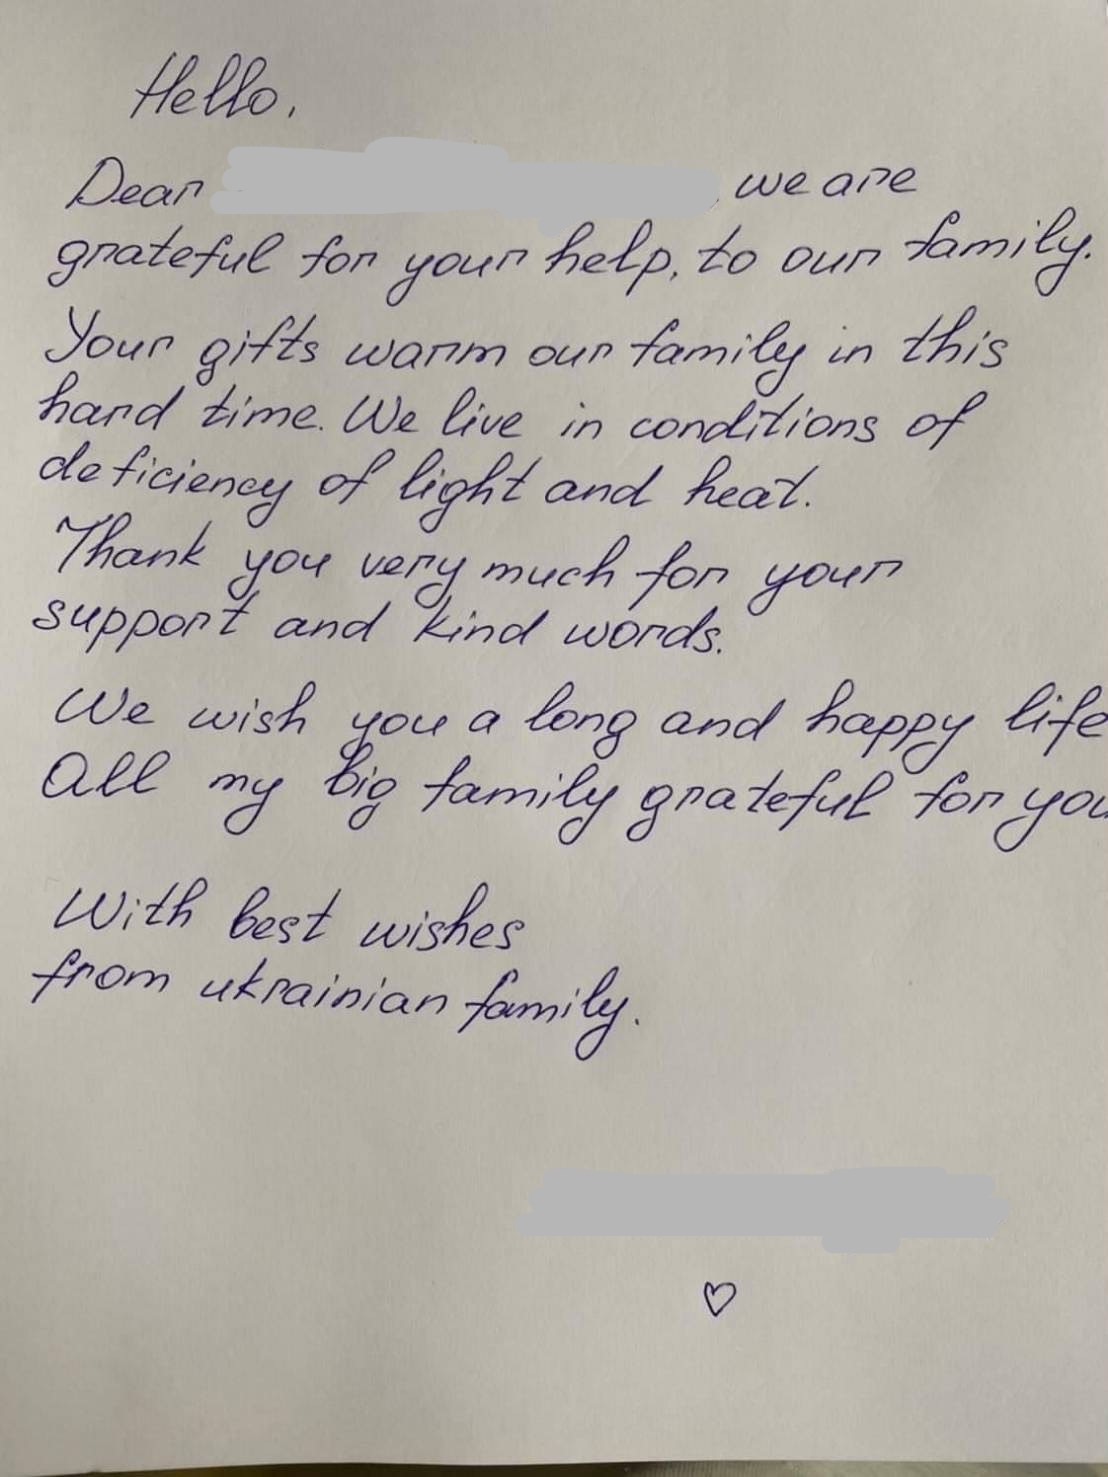 Hello,
Dear , we are
grateful for your help, to our family.
Your gifts warm our family in this
hard time. We live in conditions of
deficiency of light and heat.
Thank you very much for your
support and kind words.
We wish you a long and happy life
All my big family grateful for you
With best wishes
from ukrainian family.